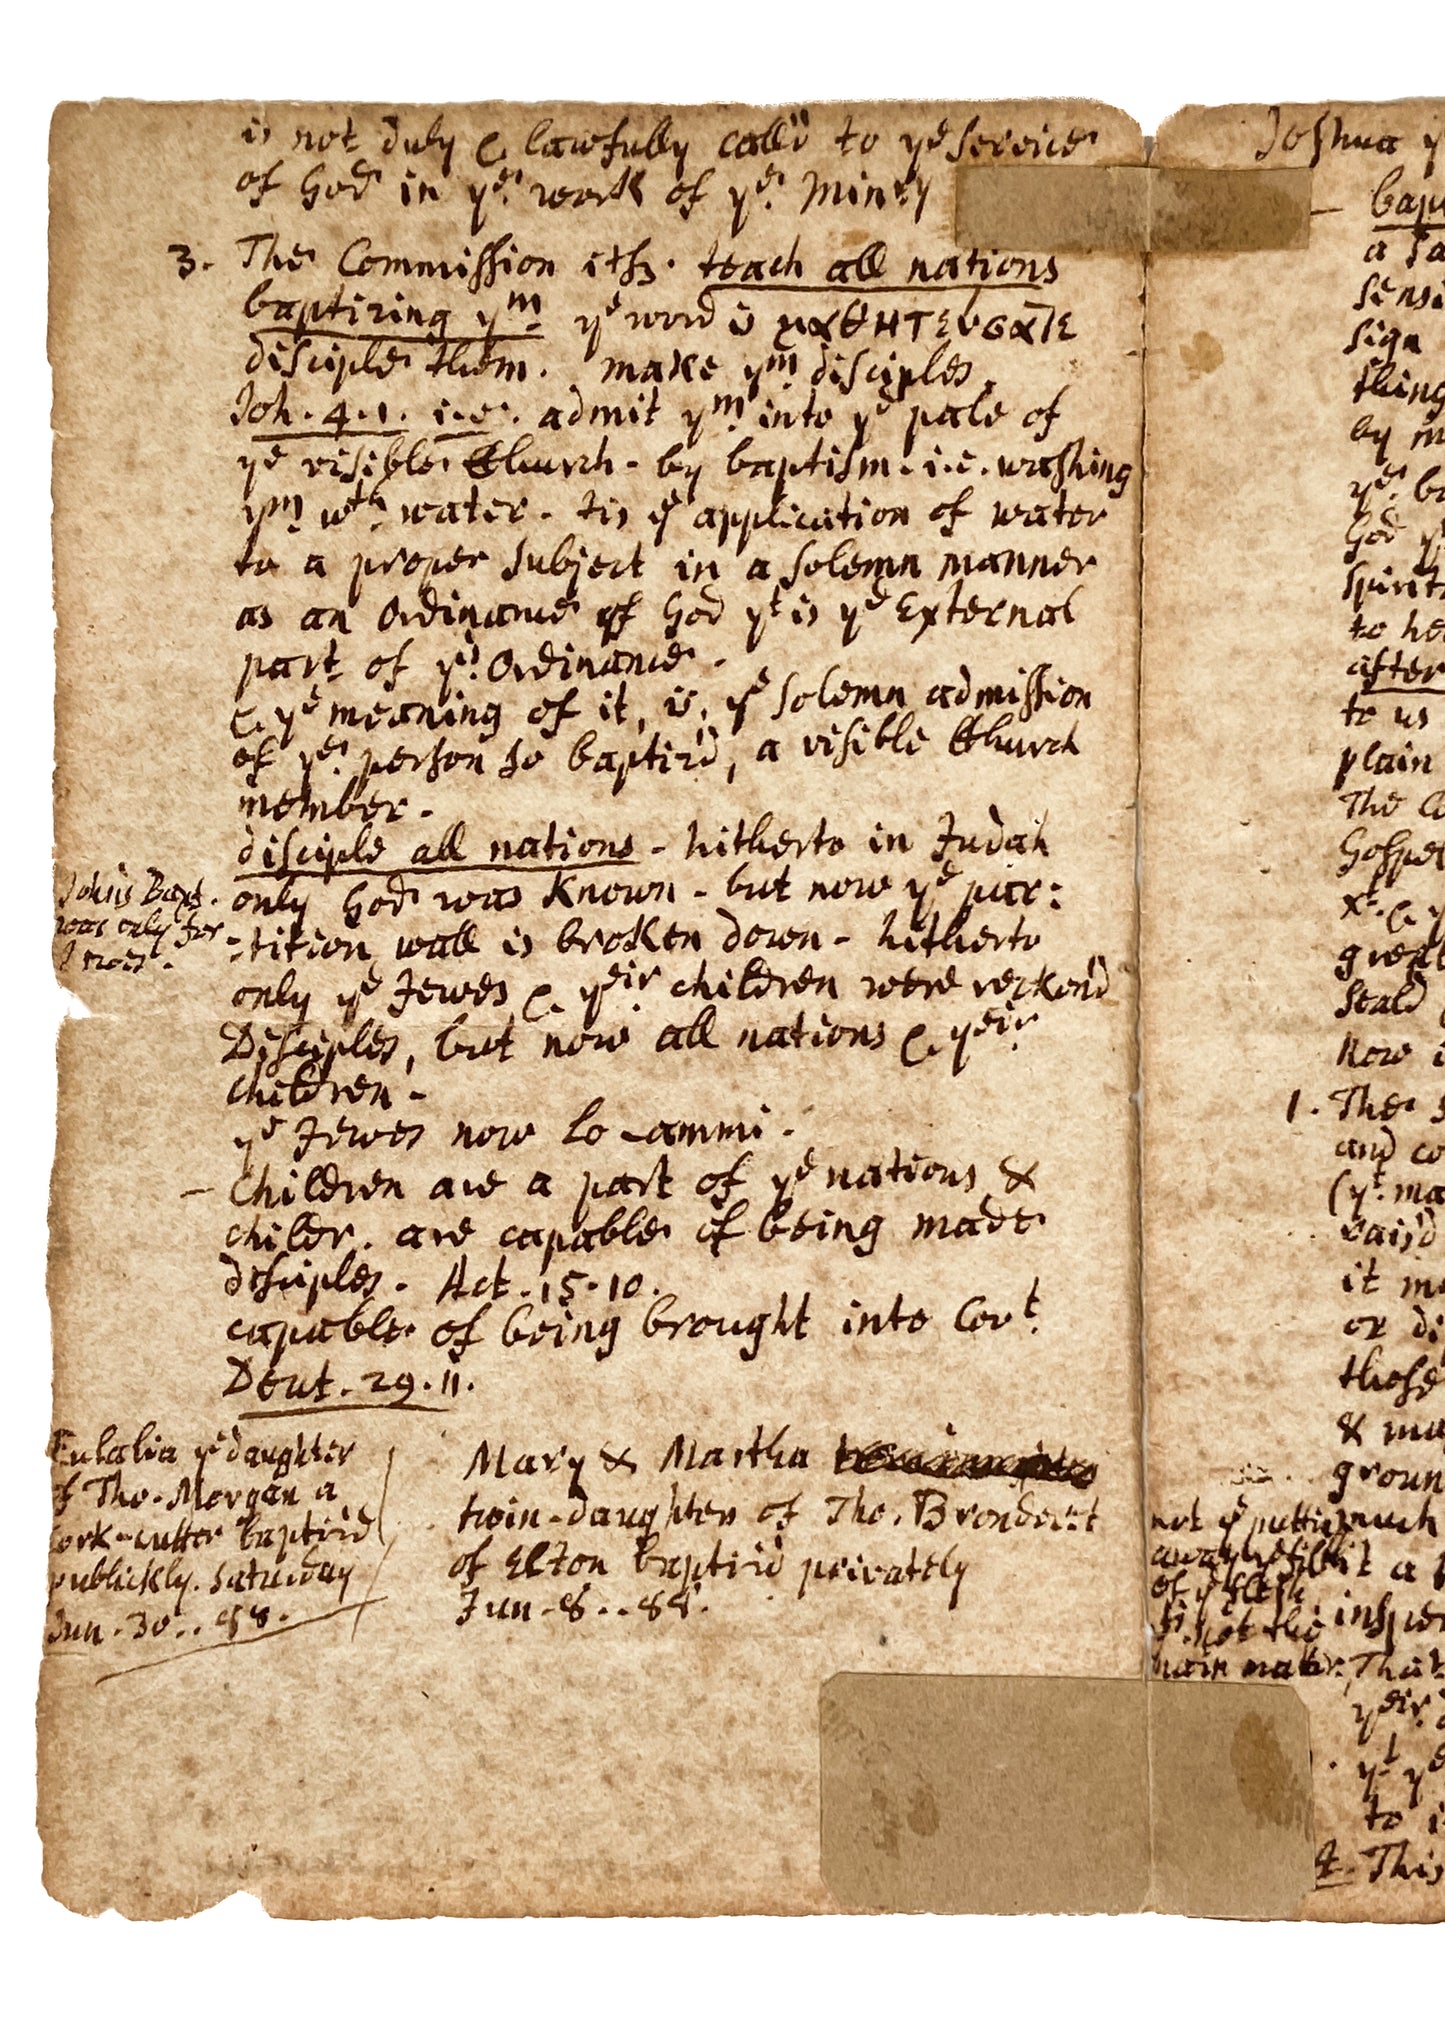 is not duly & lawfully call'd to yͤ service
of God in yͤ work of yͤ Minꝛy
3. The Commission is. teach all nations
baptizing yᵐ yͤ word is μαθητευσατε
disciple them. make yᵐ disciples.
Joh. 4.1. i.e. admit yᵐ into yͤ pale of
yͤ visible Church - by baptism. i.e. washing
yᵐ wᵗʰ water. tis yͤ application of water
to a proper subject in a solemn manner
as an Ordinance of God yᵗ is yͤ External
part of yͤ Ordinance.
& yͤ meaning of it, is, yͤ solemn admission
of yͤ person so baptiz'd, a visible Church
member.
disciple all nations - hitherto in Judah
only God was known - but now yͤ par:
:tition wall is broken down - hitherto
only yͤ Jewes & yᵉⁱʳ children were reckon'd
Disciples, but now all nations & yᵉⁱʳ
children -
yͤ Jewes now Lo-ammi.
- Children are a part of yͤ nations &
childr. are capable of being made
disciples. Act. 15.10.
capable of being brought into Covᵗ.
Deut. 29.11.
John's Bapt.
was only for
Jews.
Eulalia yͤ daughter
of Tho. Morgan a
Cork-cutter baptiz'd
publickly. Saturday
Jun. 30.. 88.
Mary & Martha
twin-daughters of Tho.
of Elton baptiz'd privately
Jun. 8.. 88.
Joshua y
- bap
a sa
sensi
sign
thing
by m
yͤ ba
God y
spirit
to he
after
to us
plain
The Co
Gospel
Xᵗ. & y
great
Seald
Now i
1. The s
and co
(yᵗ ma
rais'd
it m
or di
those
& ma
groun
much
it a
inspe
That
yᵉⁱʳ
yᵗ yͤ
to i
4. This
not yͤ putting
away yͤ filth
of yͤ flesh.
is not the
main matter.